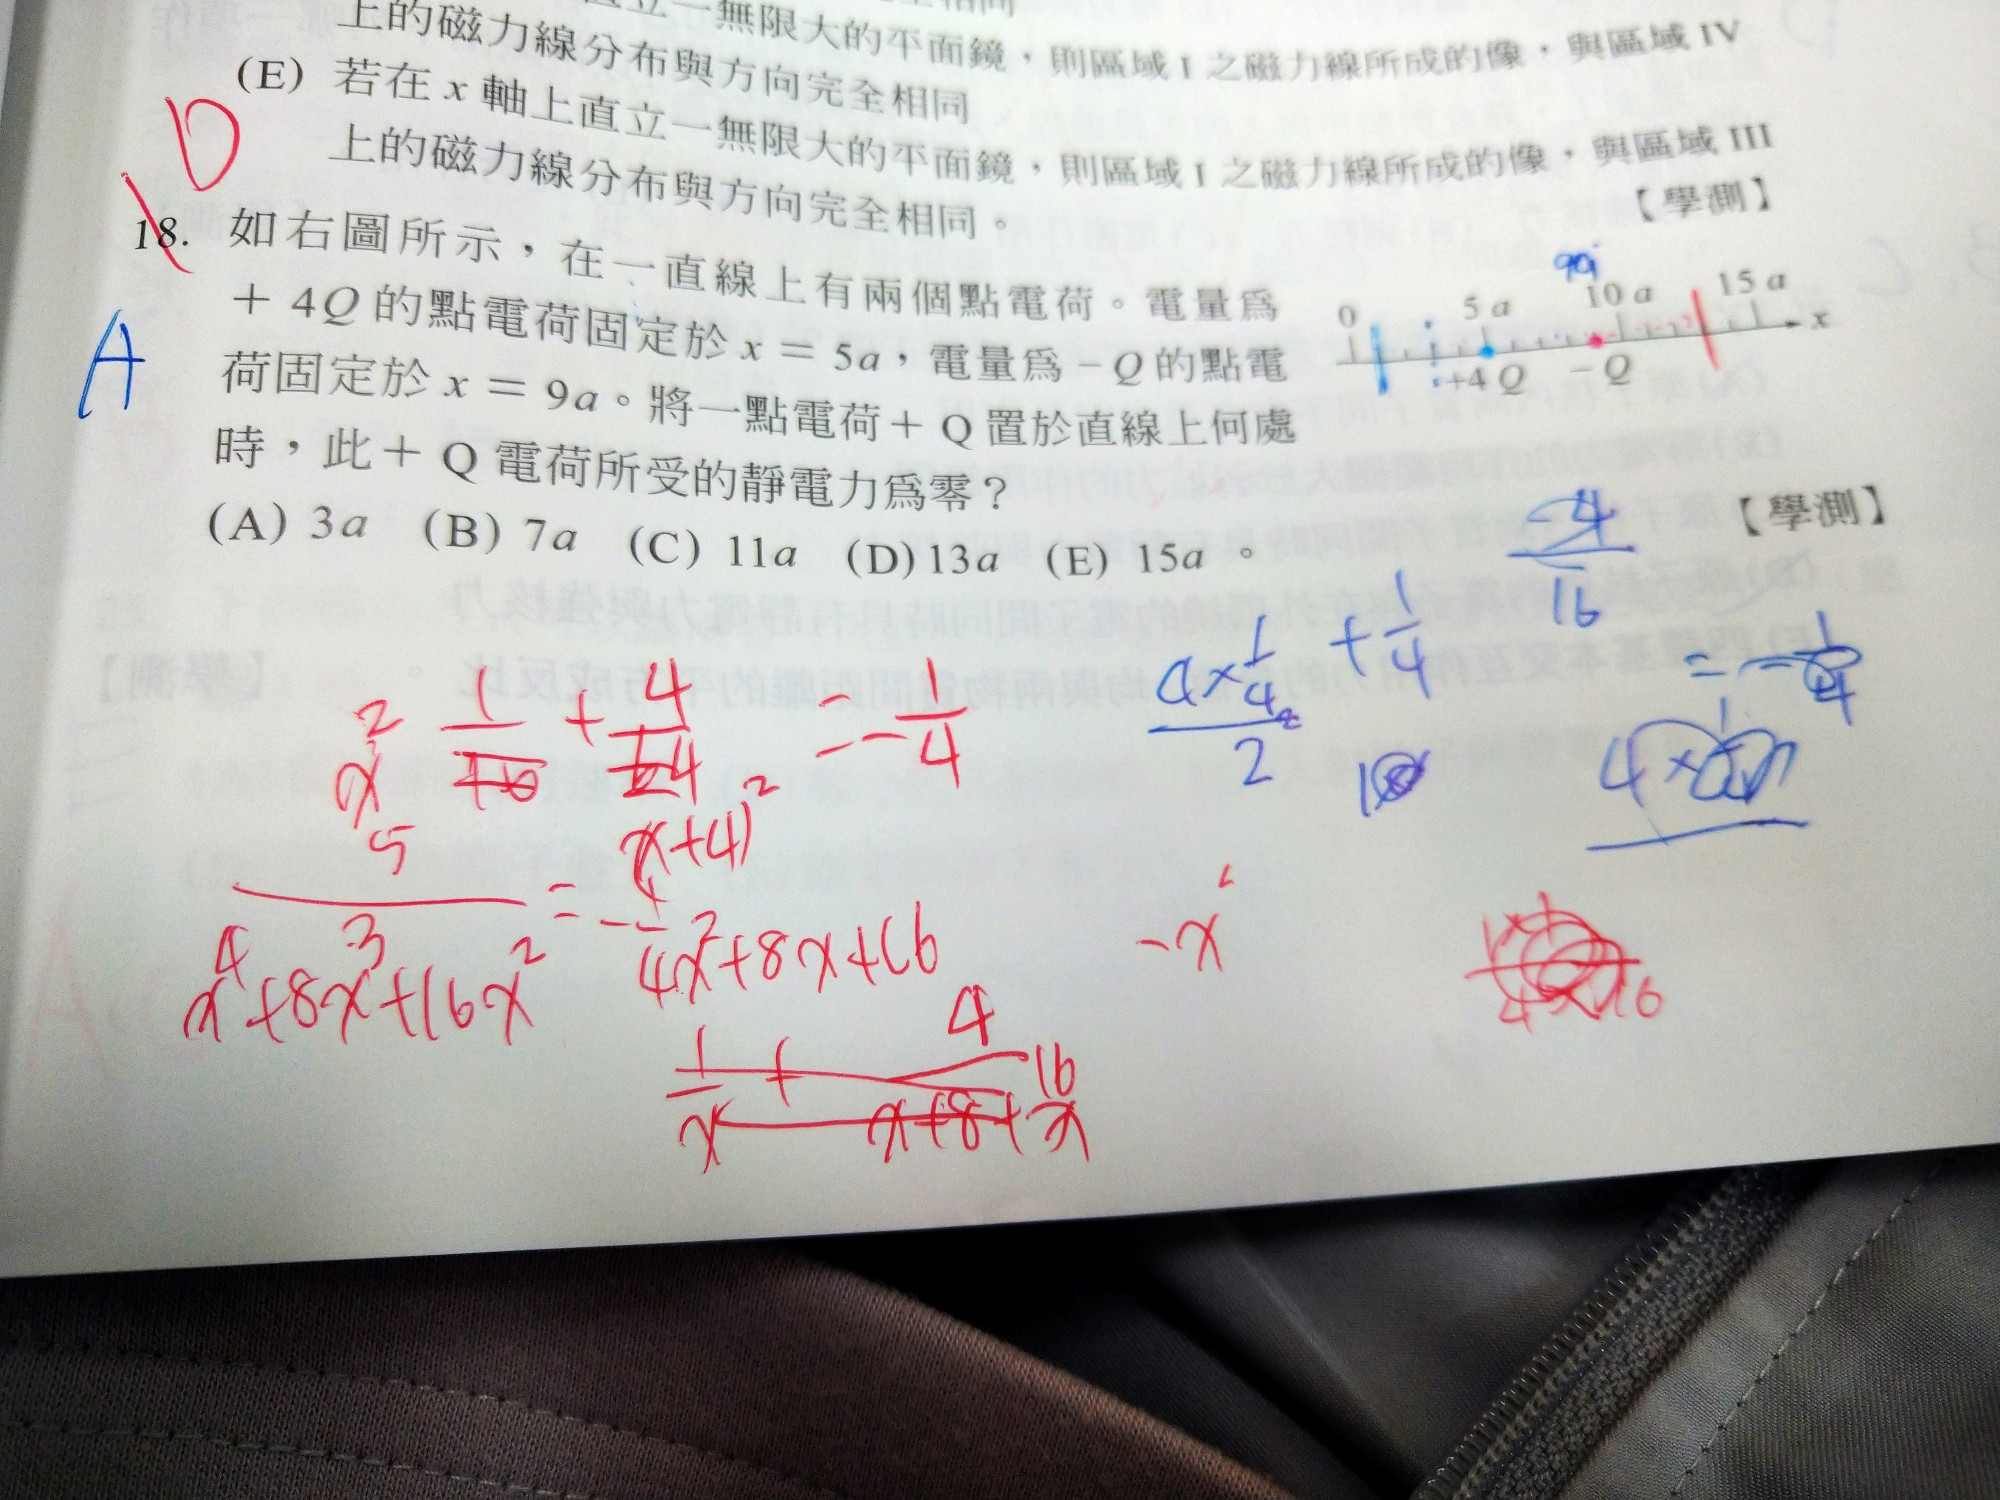 直立一無限大的平面鏡，則區域 I 之磁力線所成的像，與區域 IV
上的磁力線分布與方向完全相同
(E) 若在 x 軸上直立一無限大的平面鏡，則區域 I 之磁力線所成的像，與區域 III
上的磁力線分布與方向完全相同。
【學測】
D
18. 如右圖所示，在一直線上有兩個點電荷。電量爲
+ 4Q 的點電荷固定於 x = 5a，電量爲 – Q 的點電
荷固定於 x = 9a。將一點電荷 + Q 置於直線上何處
時，此 + Q 電荷所受的靜電力爲零？
(A) 3a (B) 7a (C) 11a (D) 13a (E) 15a 。
【學測】
A
9a
0 5a 10a 15a
x
+4Q –Q
-4
16
4
1/4 + 1/4
2
4×
x² 1 + 4 = -1/4
(x+4)²
5
x⁴+8x³+16x²
4x²+8x+16
1/x + 4
x+8+16/x